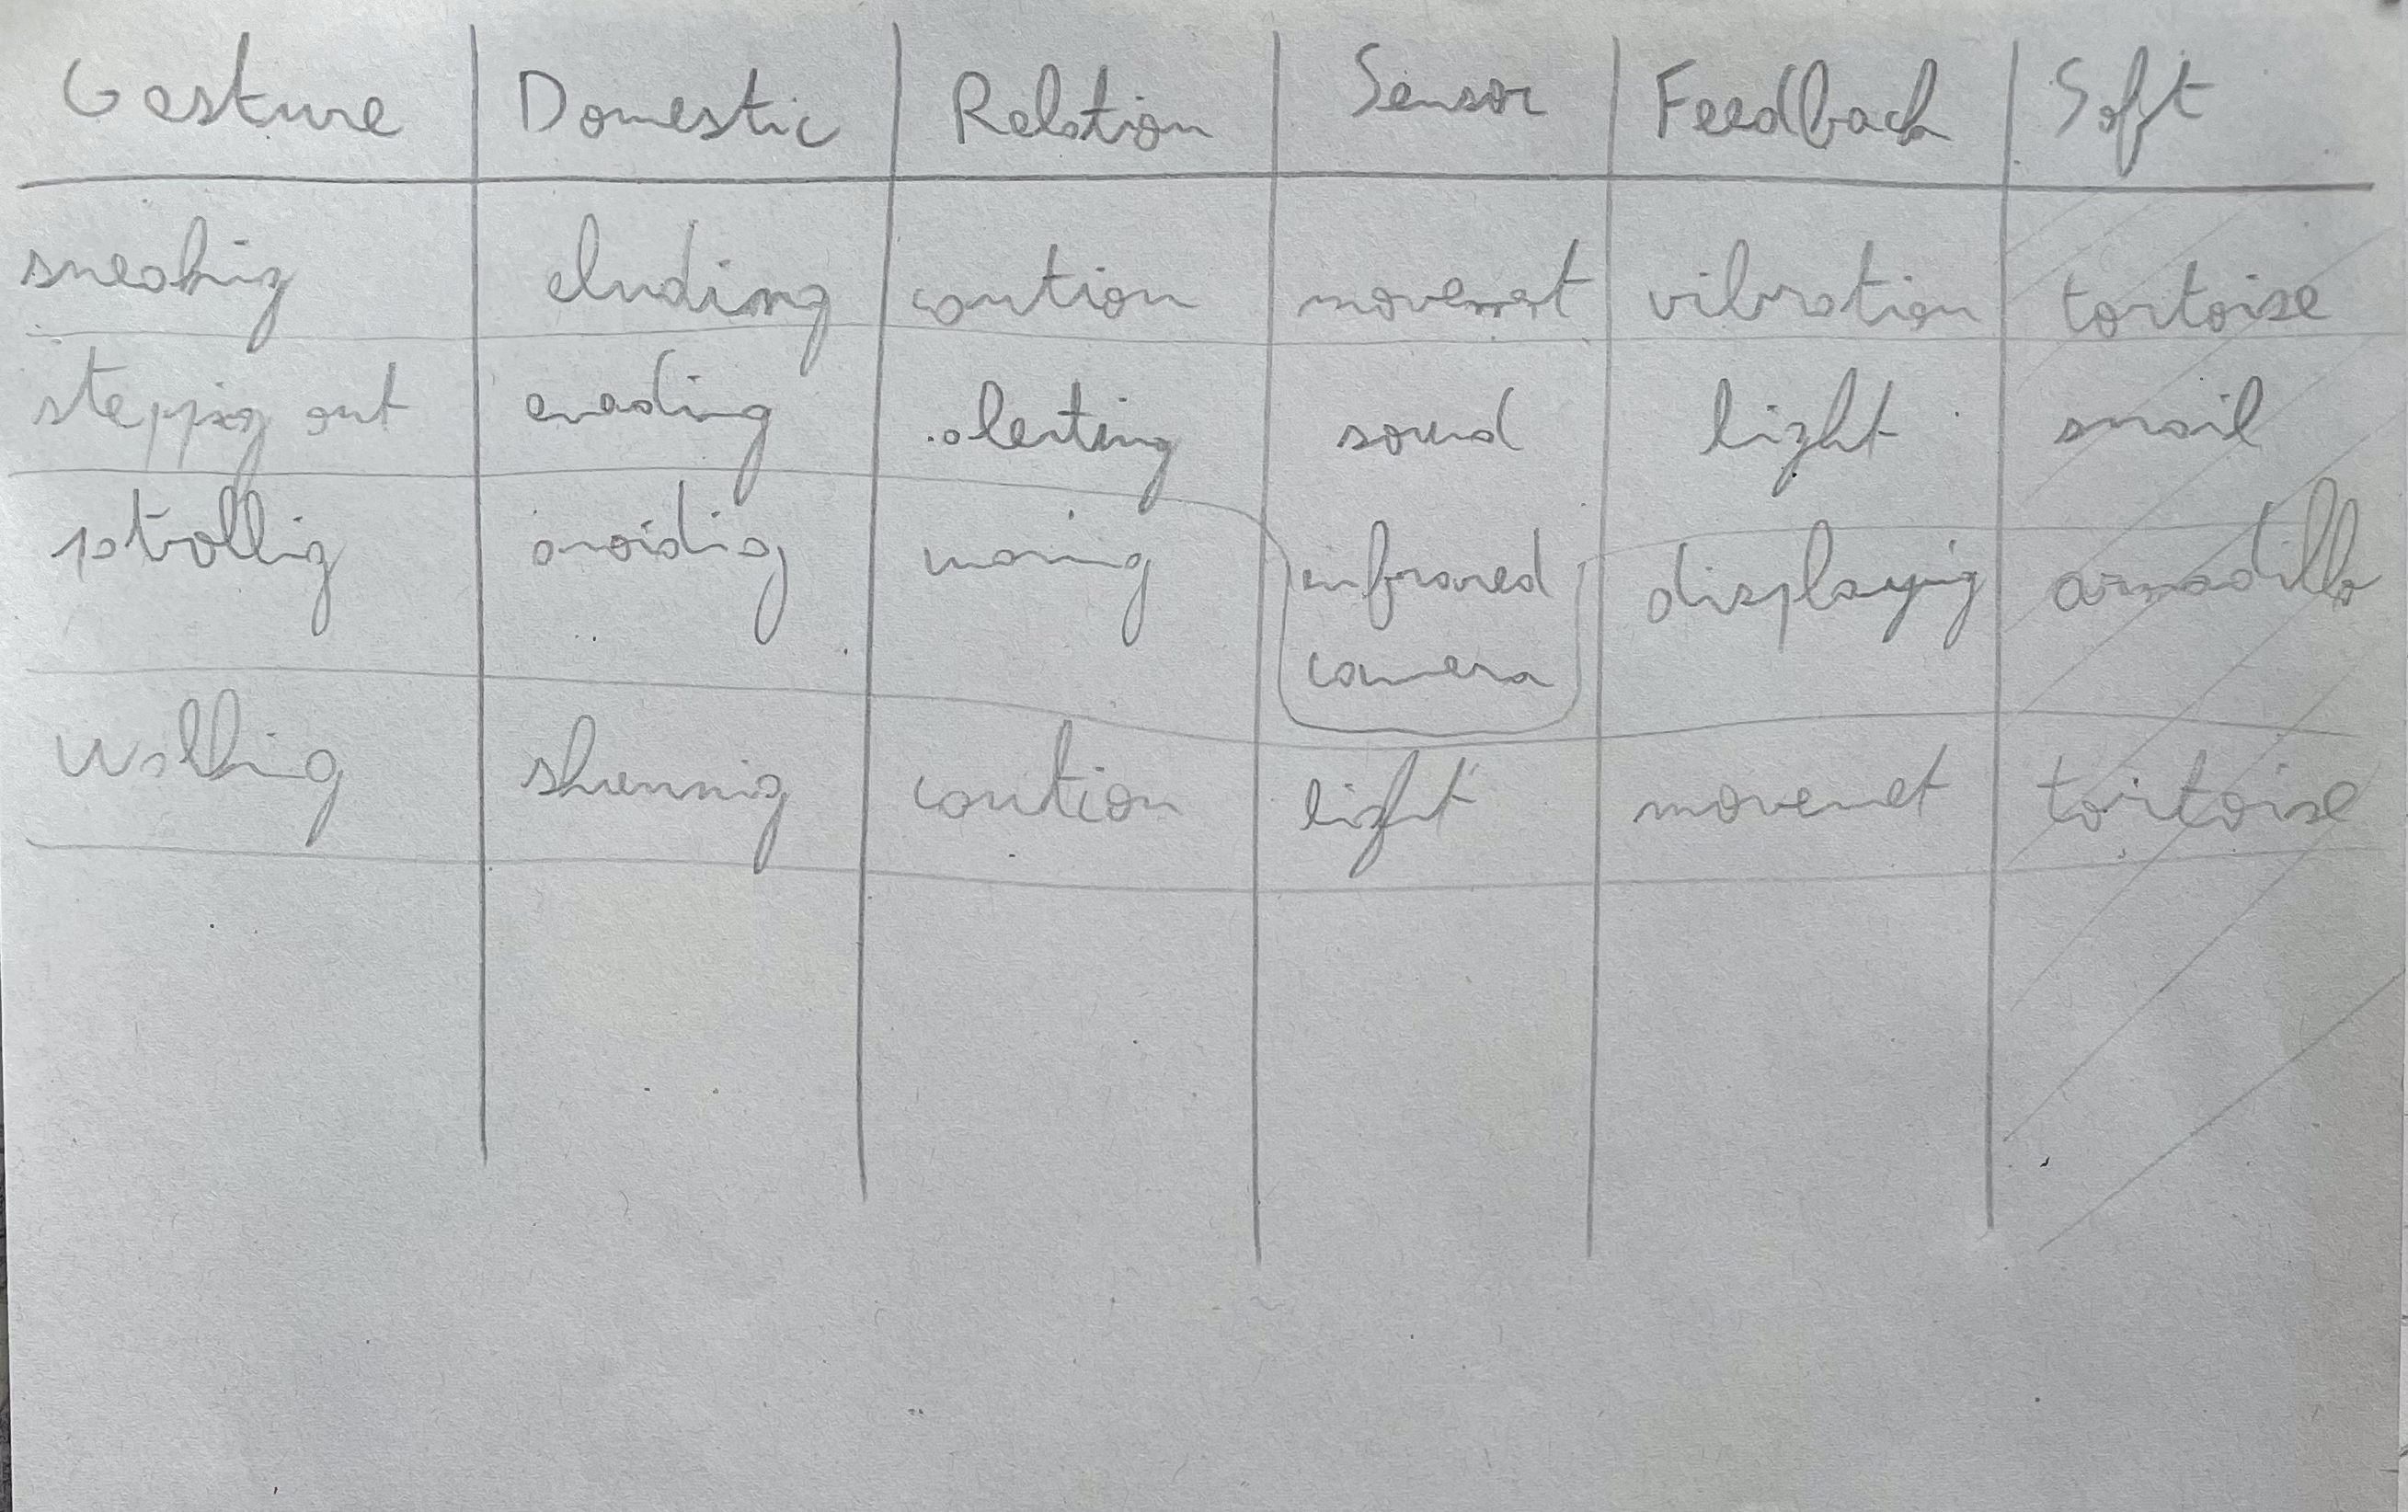 Gesture Domestic Relation Sensor Feedback Soft
sneaking eluding caution movement vibration tortoise
stepping out evading alerting sound light snail
patrolling avoiding infrared displaying armadillo
camera
walking shunning caution light movemet tortoise